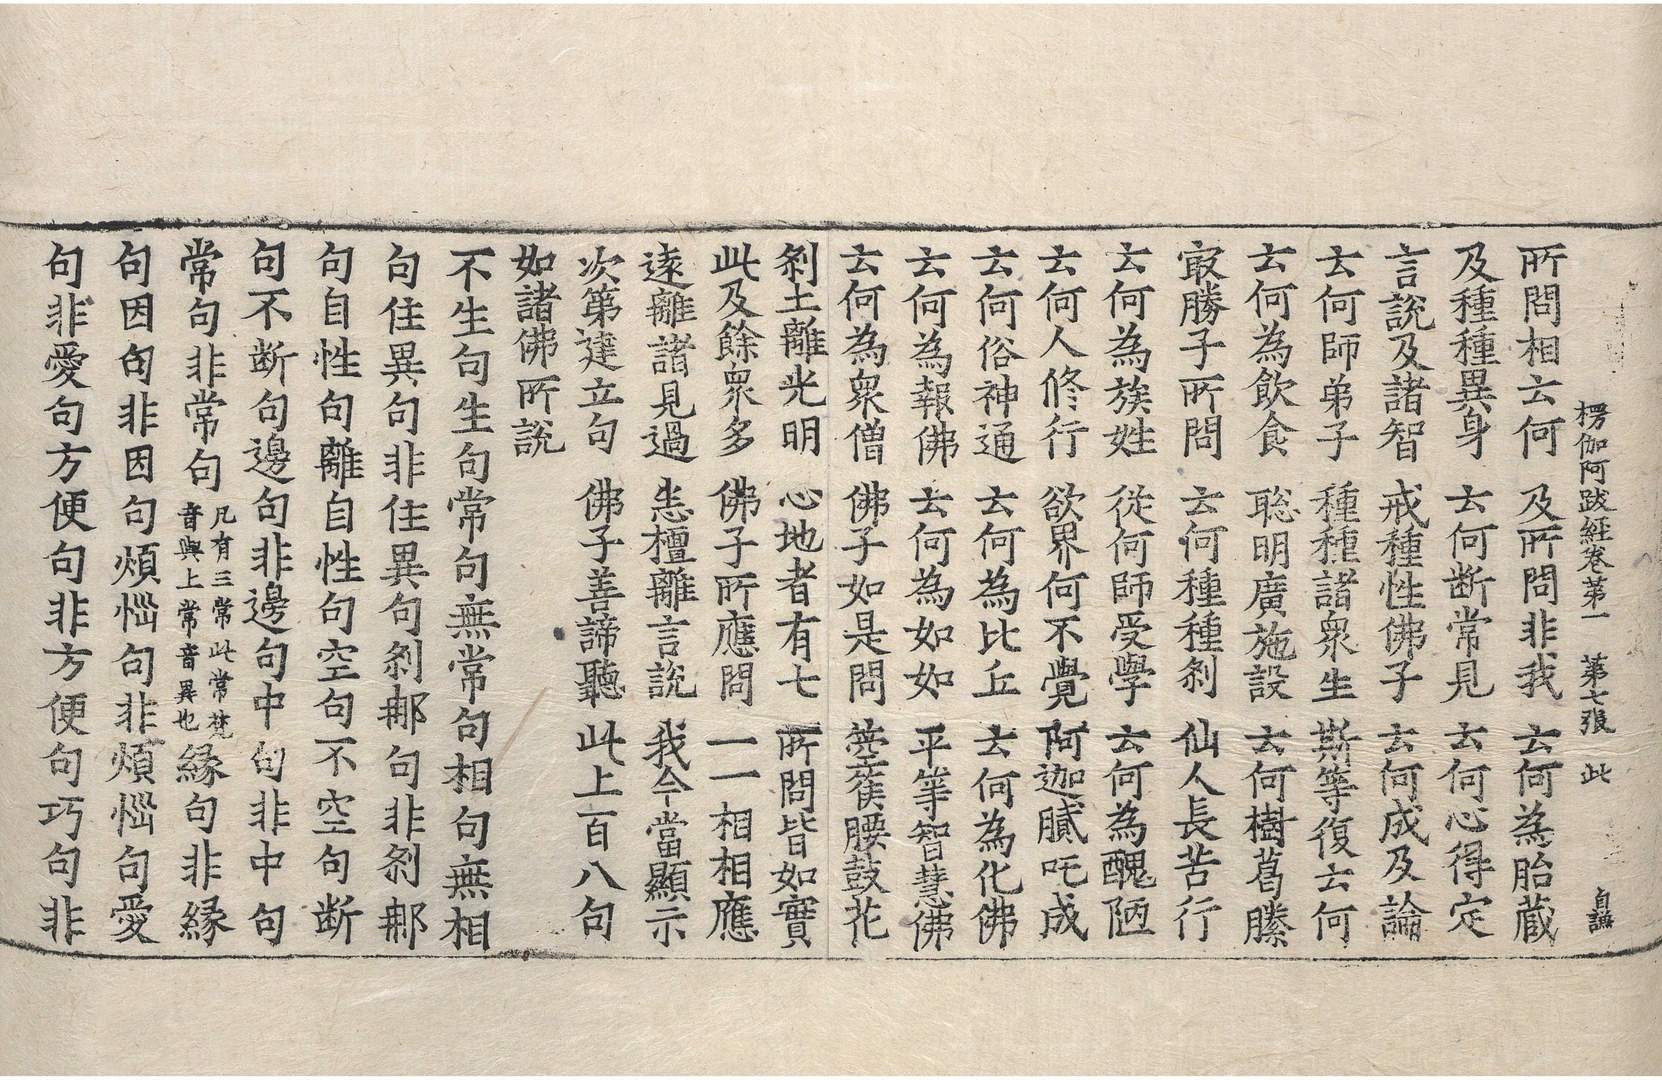 楞伽阿跋經卷第一　第七張　此　自謙
所問相云何　及所問非我　云何為胎藏
及種種異身　云何断常見　云何心得定
言說及諸智　戒種性佛子　云何成及論
云何師弟子　種種諸衆生　斯等復云何
云何為飲食　聡明廣施設　云何樹葛縢
㝡勝子所問　云何種種刹　仙人長苦行
云何為族姓　從何師受學　云何為醜陋
云何人修行　欲界何不覺　阿迦膩吒成
云何俗神通　云何為比丘　云何為化佛
云何為報佛　云何為如如　平等智慧佛
云何為衆僧　佛子如是問　箜篌腰鼓花
刹土離光明　心地者有七　所問皆如實
此及餘衆多　佛子所應問　一一相相應
遠離諸見過　悉檀離言說　我今當顯示
次第建立句　佛子善諦聽　此上百八句
如諸佛所說
不生句生句常句無常句相句無相
句住異句非住異句刹𨙻句非刹𨙻
句自性句離自性句空句不空句断
句不断句邊句非邊句中句非中句
常句非常句凡有三常此常梵音與上常音異也緣句非緣
句因句非因句煩惱句非煩惱句愛
句非愛句方便句非方便句巧句非